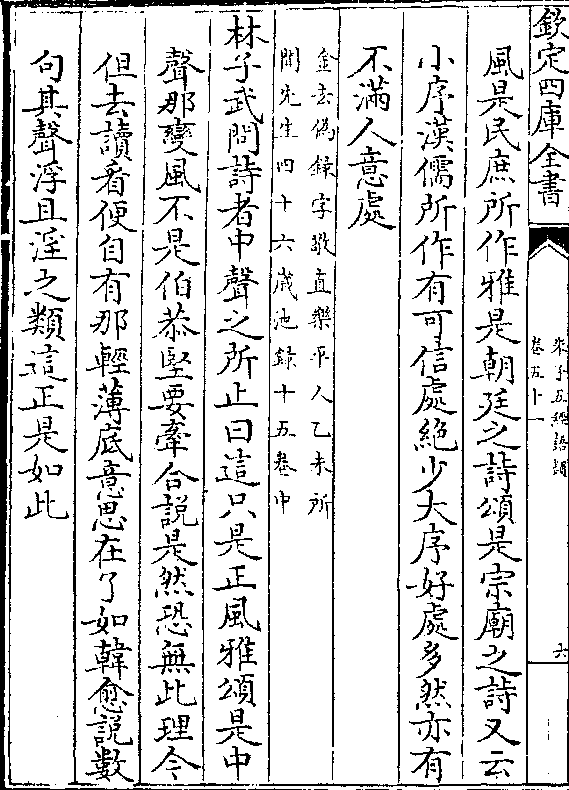 欽定四庫全書
朱子五經語類
卷五十一
六
風是民庶所作雅是朝廷之詩頌是宗廟之詩又云
小序漢儒所作有可信處絶少大序好處多然亦有
不滿人意處
金去偽錄字敬直樂平人乙未所
聞先生四十六歲池錄十五卷中
林子武問詩者中聲之所止曰這只是正風雅頌是中
聲那變風不是伯恭堅要牽合說是然恐無此理今
但去讀看便自有那輕薄底意思在了如韓愈說數
句其聲浮且淫之類這正是如此